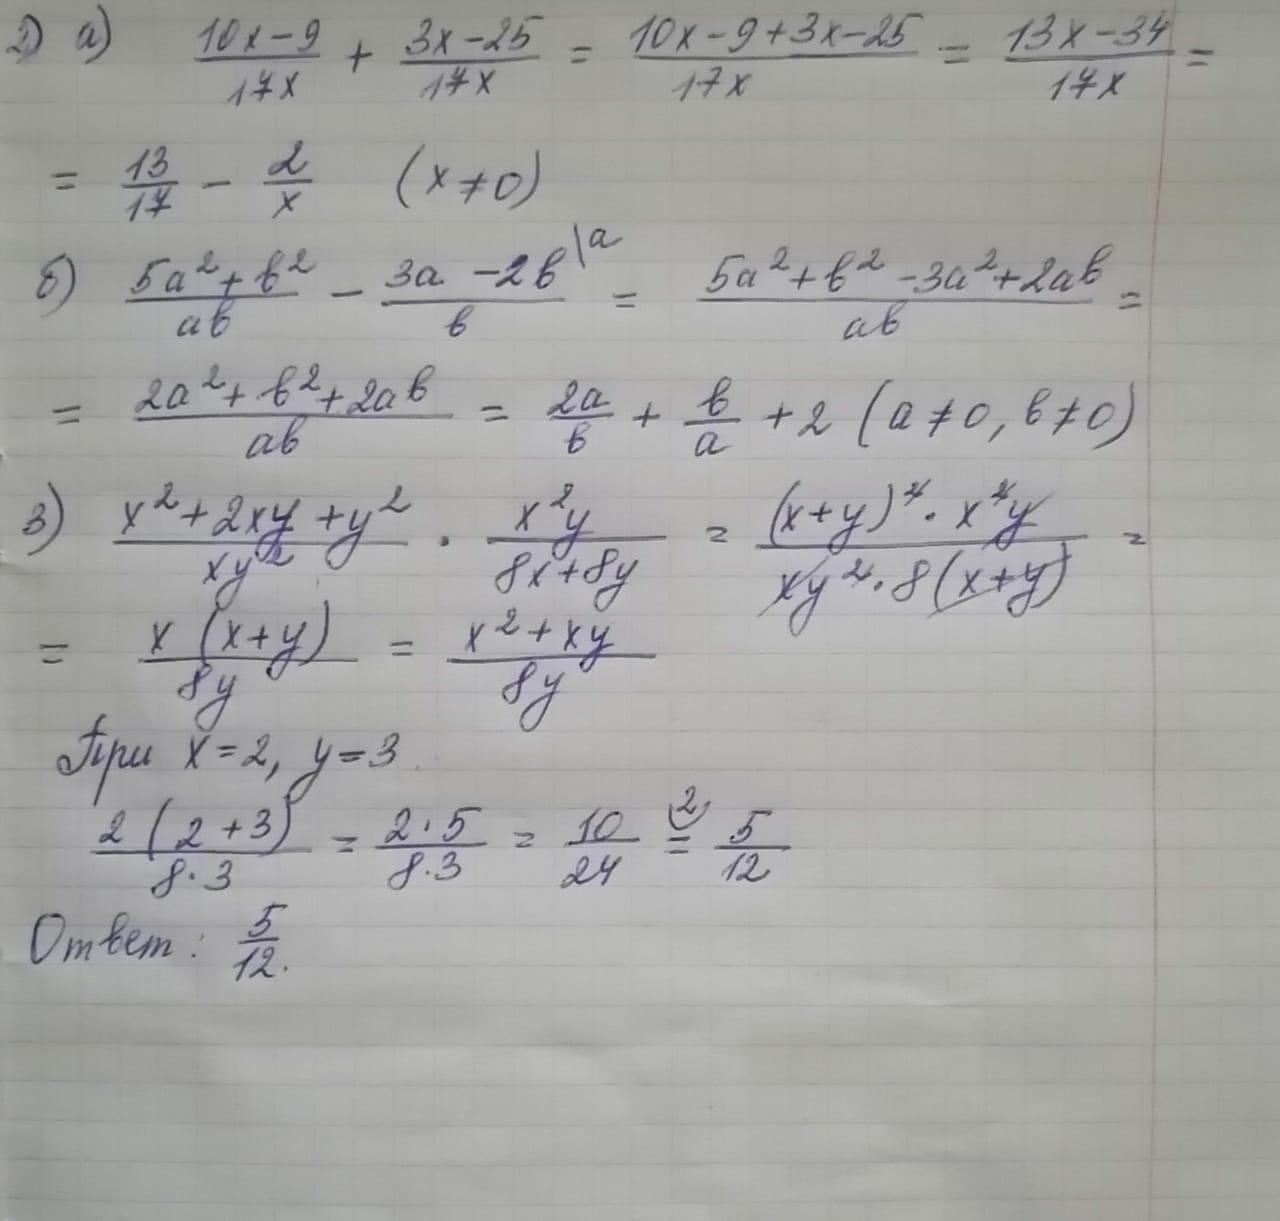 2) а) (10x-9)/(17x) + (3x-25)/(17x) = (10x-9+3x-25)/(17x) = (13x-34)/(17x) =
= 13/17 - 2/x (x≠0)
б) (5a²+b²)/(ab) - (3a-2b)/b \a = (5a²+b²-3a²+2ab)/(ab) =
= (2a²+b²+2ab)/(ab) = 2a/b + b/a + 2 (a≠0, b≠0)
3) (x²+2xy+y²)/(xy²) · (x²y)/(8x+8y) = ((x+y)²·x²y)/(xy²·8(x+y)) =
= (x(x+y))/(8y) = (x²+xy)/(8y)
При x=2, y=3
(2(2+3))/(8·3) = (2·5)/(8·3) = 10/24 =(2 5/12
Ответ: 5/12.